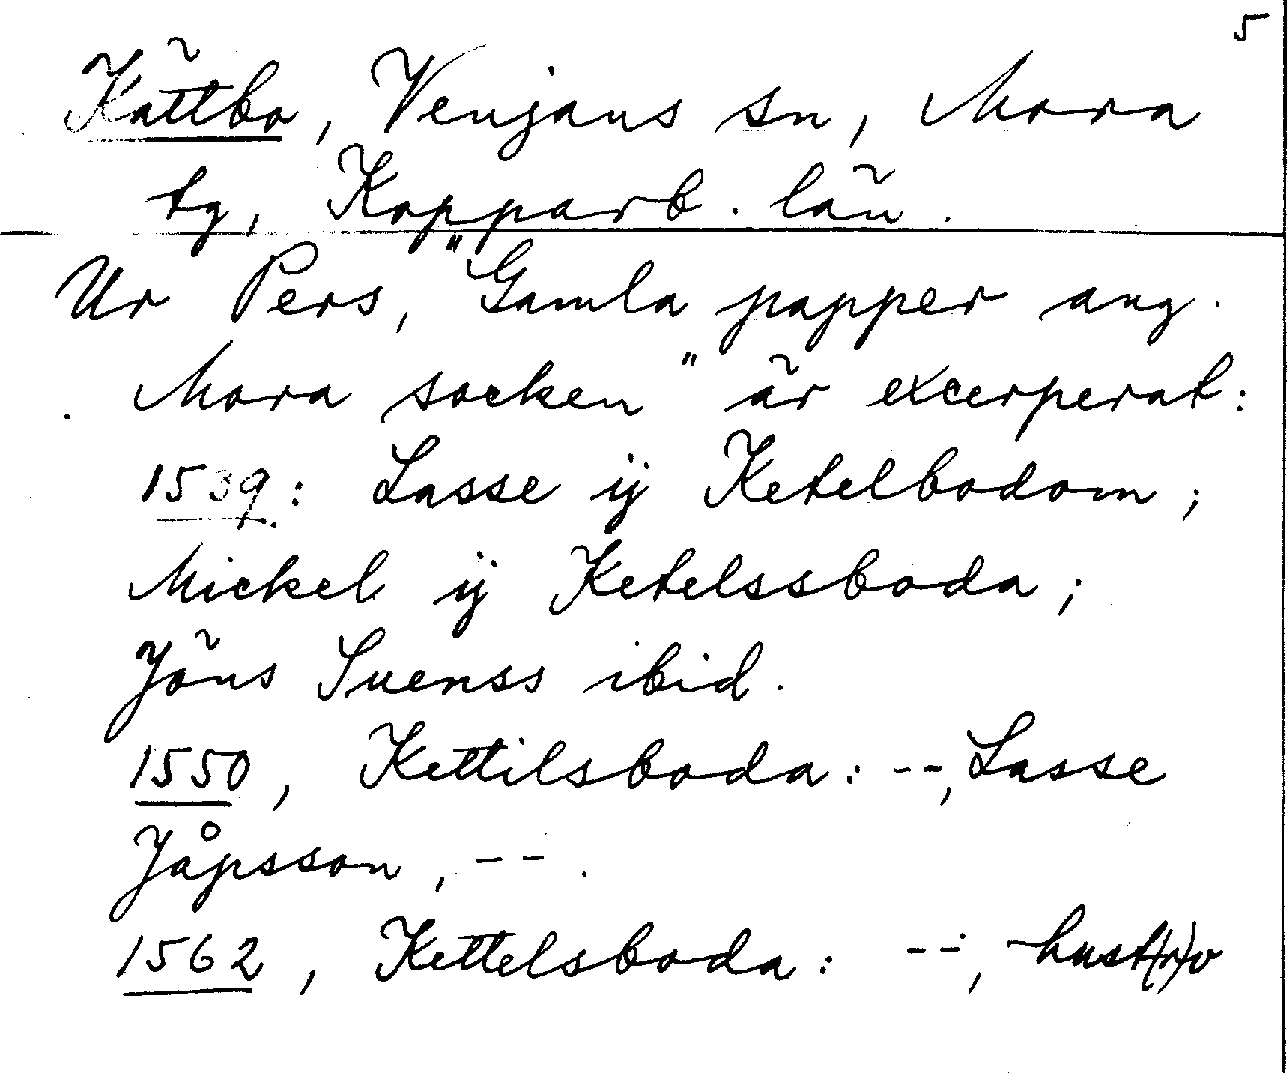 5
Kättbo, Venjans sn, Mora
tg, Kopparb. län.
Ur Pers, "Gamla papper ang.
Mora socken" är excerperat:
1539: Lasse ij Ketelbodom;
Mickel ij Ketelssboda;
Jöns Suenss ibid.
1550, Kettilsboda: --, Lasse
Jåpsson, --.
1562, Kettelsboda: --, hust(r)v